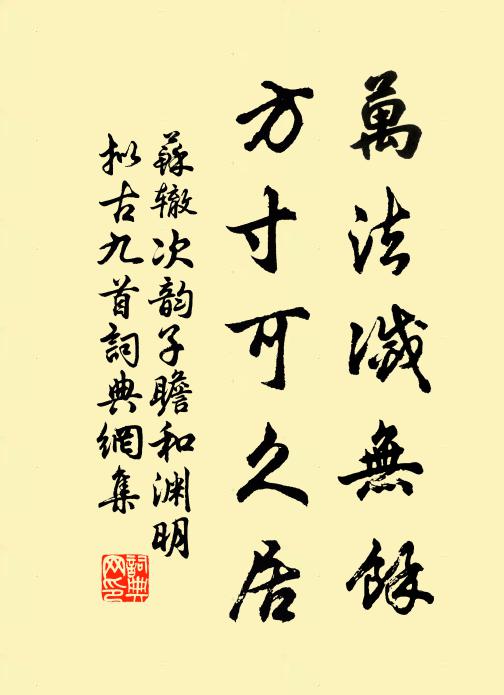 萬法滅無餘
方寸可久居
蘇辙次韵子瞻和渊明
拟古九首詞典網集
詞典网印